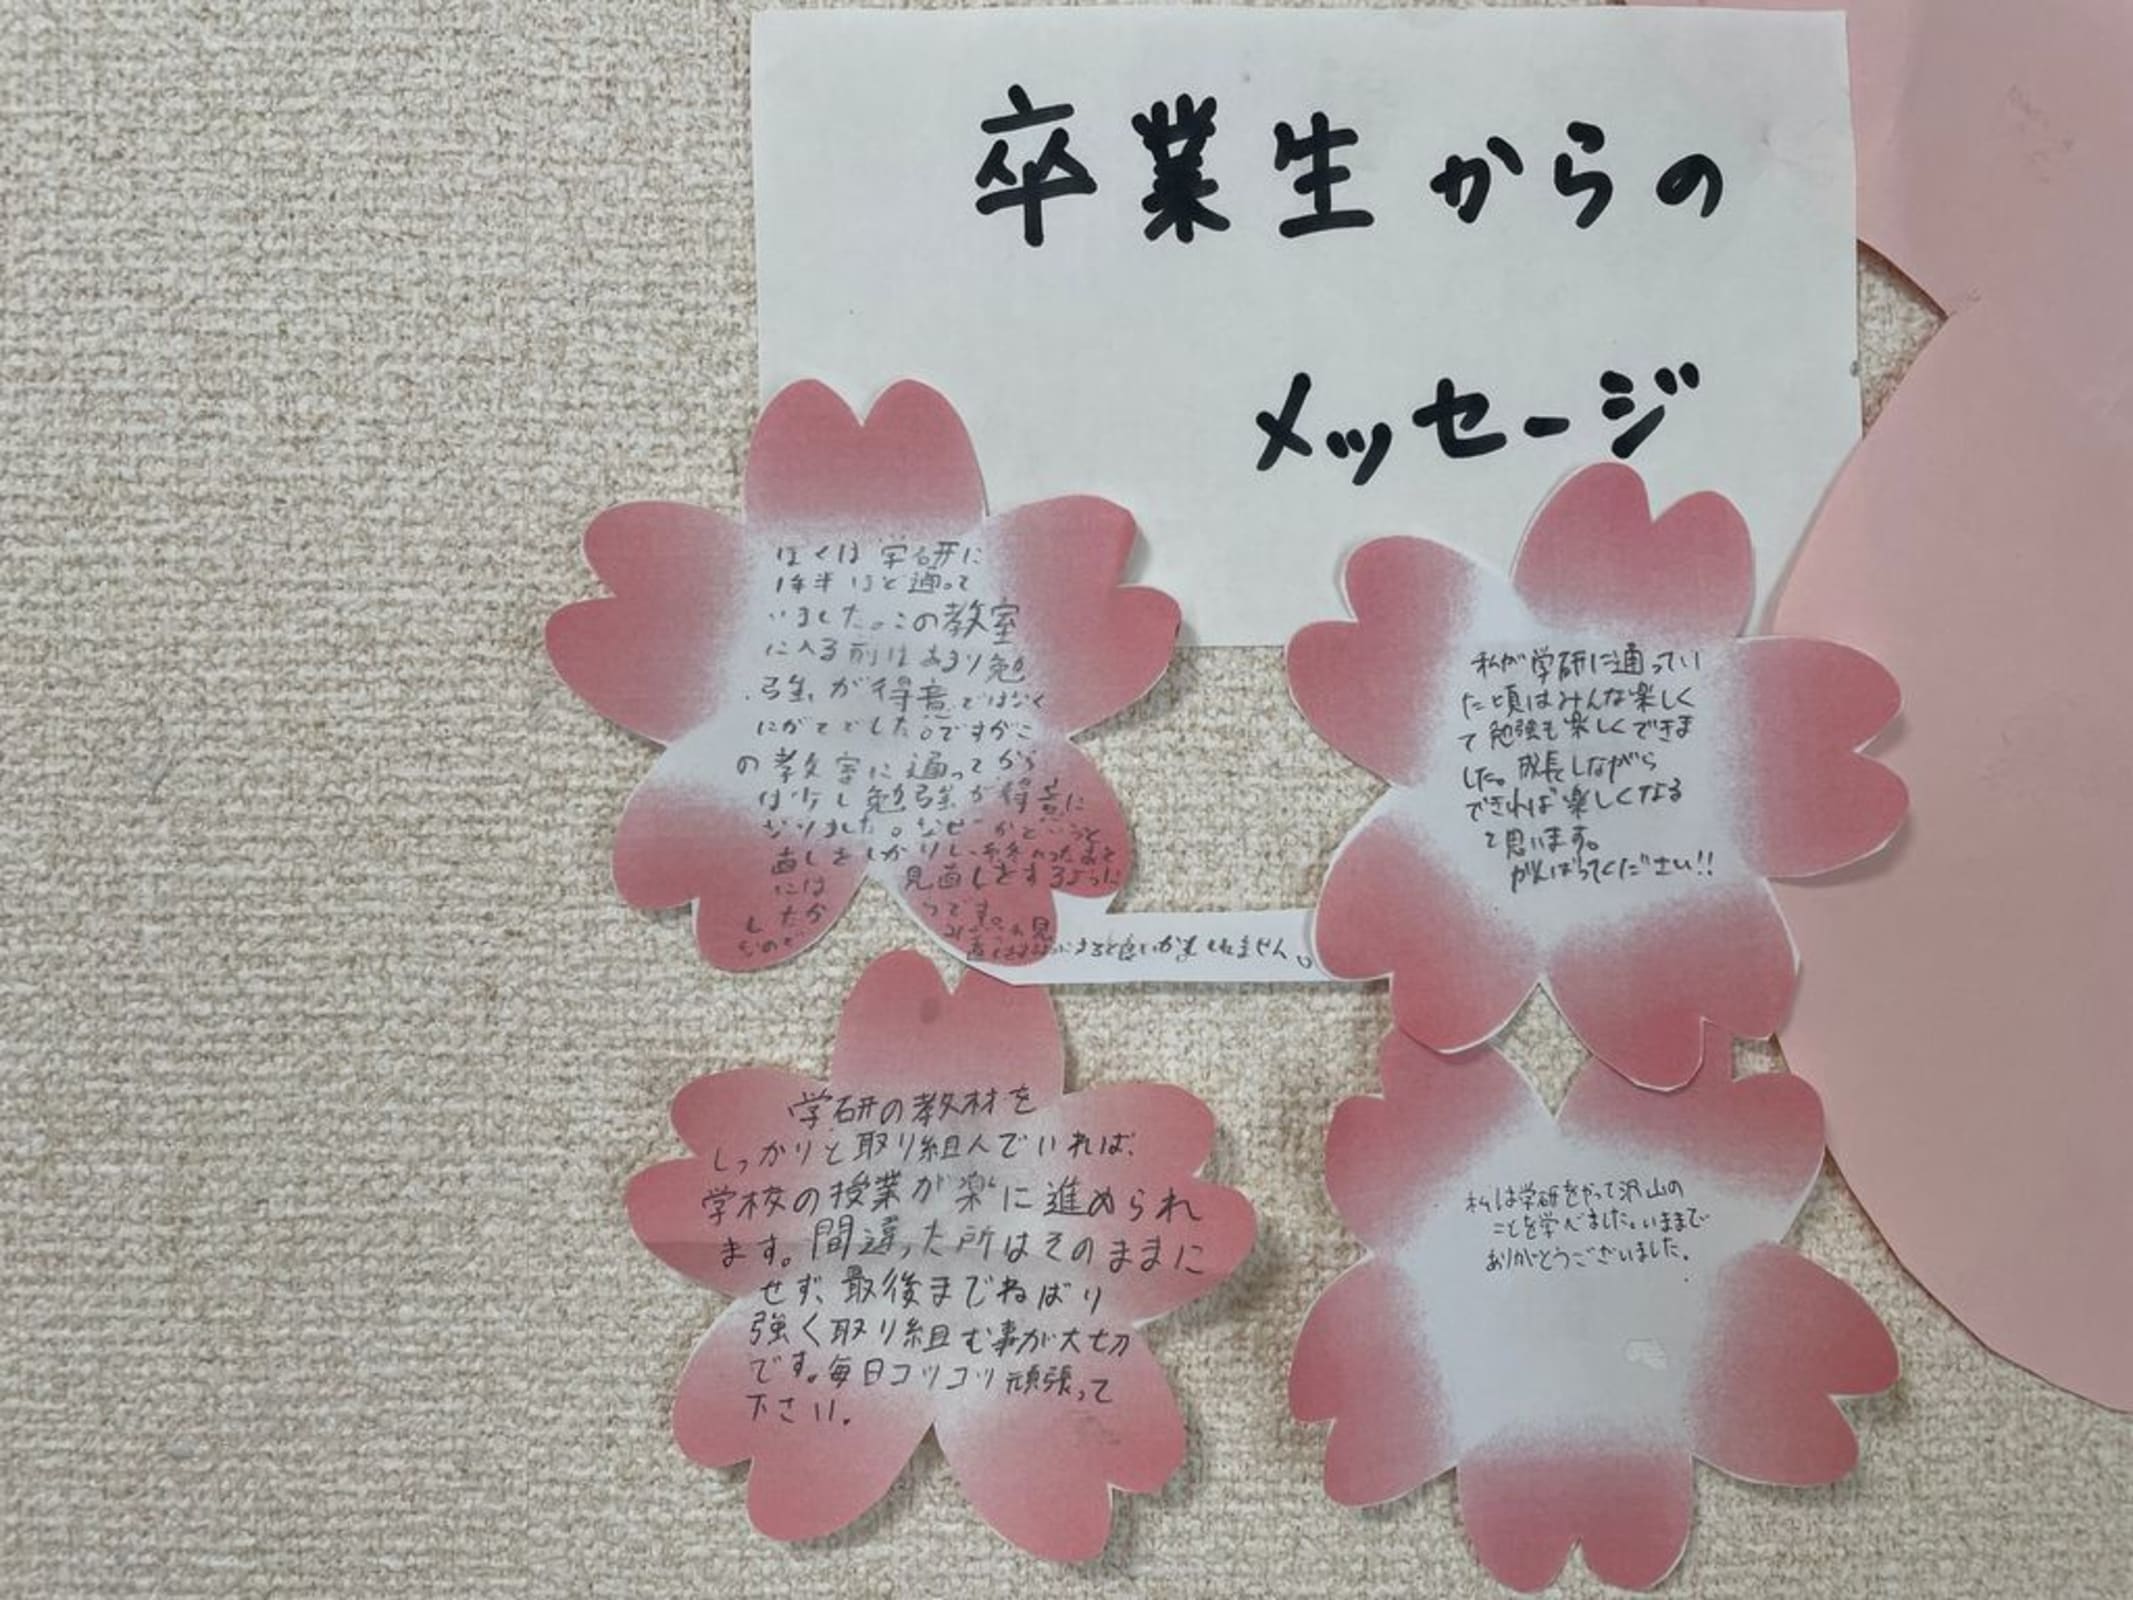 卒業生からの
メッセージ
ぼくは学研に
1年半ほど通って
いました。この教室
に入る前はあまり勉
強が得意ではなく
にがてでした。ですがこ
の教室に通ってから
は少し勉強が得意に
なりました。なぜかというと
直しをしかりし、
には 見直しをするように
したか らです。
なので みなさんも見
直しをするようにすると良いかもしれません。
私が学研に通ってい
た頃はみんな楽しく
て勉強も楽しくできま
した。成長しながら
できれば楽しくなる
て思います。
がんばってください!!
学研の教材を
しっかりと取り組んでいれば、
学校の授業が楽に進められ
ます。間違った所はそのままに
せず、最後までねばり
強く取り組む事が大切
です。毎日コツコツ頑張って
下さい。
私は学研をやって沢山の
ことを学べました。いままで
ありがとうございました。